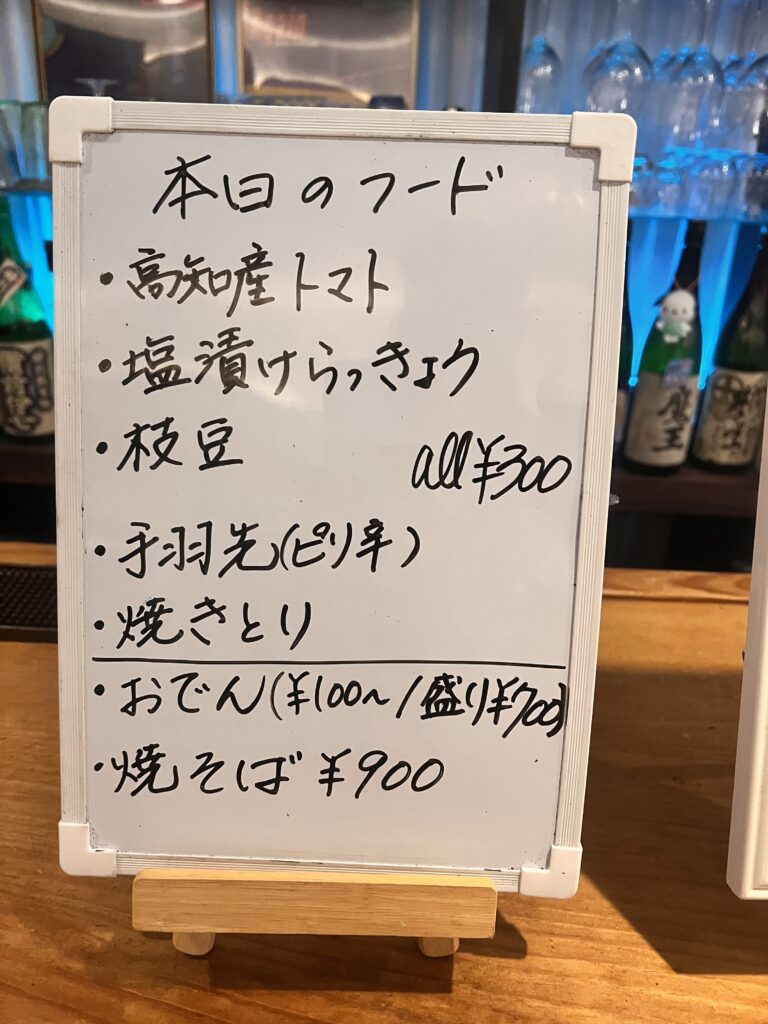 本日のフード
・高知産トマト
・塩漬けらっきょう
・枝豆
all¥300
・手羽先(ピリ辛)
・焼きとり
・おでん(¥100~/盛り¥700)
・焼そば ¥900
魔王